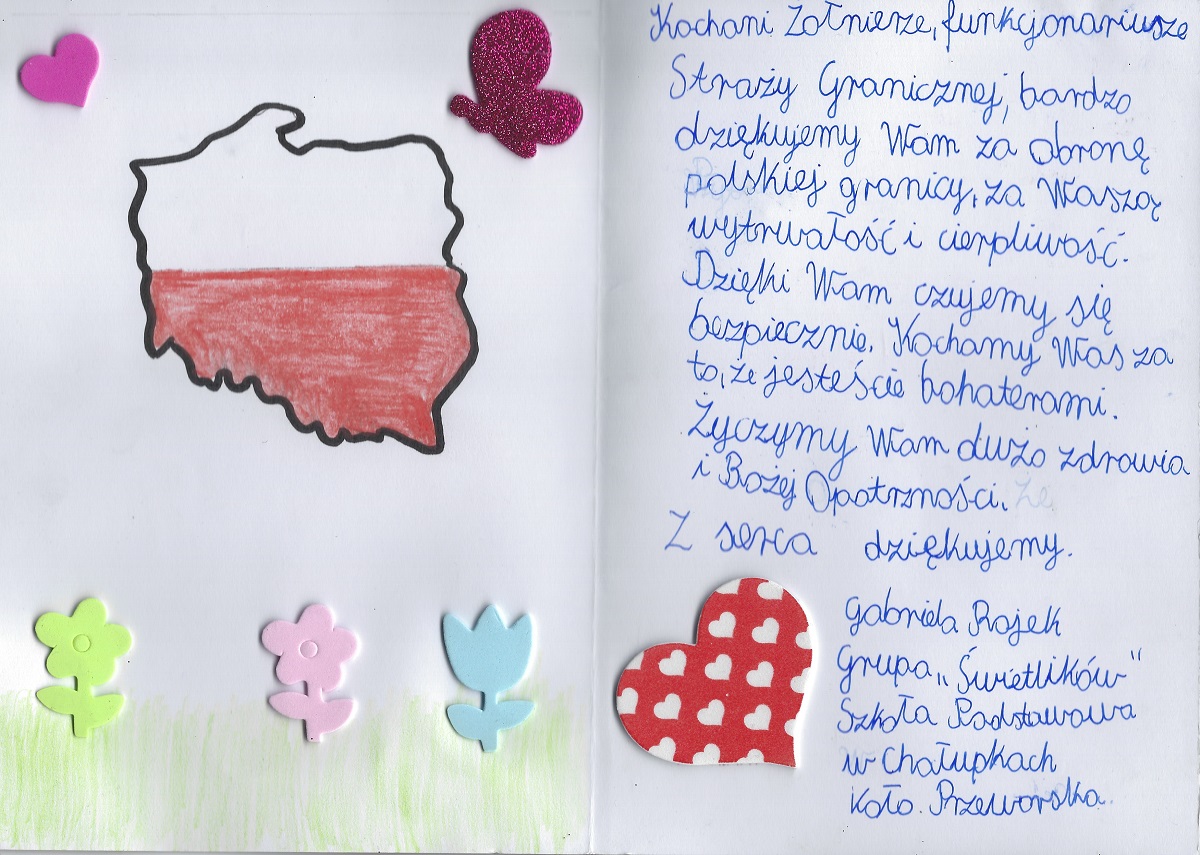 Kochani Żołnierze, funkcjonariusze
Straży Granicznej, bardzo
dziękujemy Wam za obronę
polskiej granicy, za Waszą
wytrwałość i cierpliwość.
Dzięki Wam czujemy się
bezpiecznie. Kochamy Was za
to, że jesteście bohaterami.
Życzymy Wam dużo zdrowia
i Bożej Opatrzności.
Z serca dziękujemy.
Gabriela Rojek
Grupa „Świetlików"
Szkoła Podstawowa
w Chałupkach
koło. Przeworska.